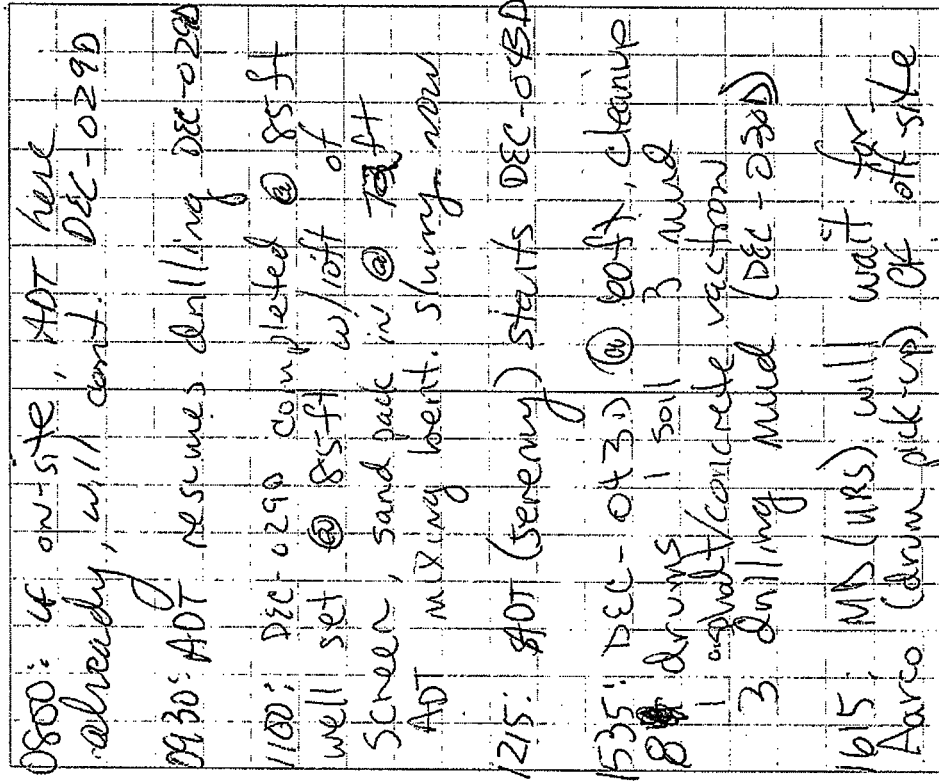 0800: LF on-site, ADT here
already, will cont. DEC-029D
0930: ADT resumes drilling DEC-029D
1100: DEC-029D completed @ 85ft
well set @ 85ft w/10ft of
Screen, sand pack in @ ft
ADT mixing bent. slurry now
1215: ADT (Seremy) starts DEC-043D
1535: DEC-043D @ 60ft, cleanup
8 drums 1 soil 3 mud
1 asphalt/concrete vactron
3 drilling mud (DEC-030D)
1615: MD (URS) will wait for
Aarco (drum pick-up) LF off-site